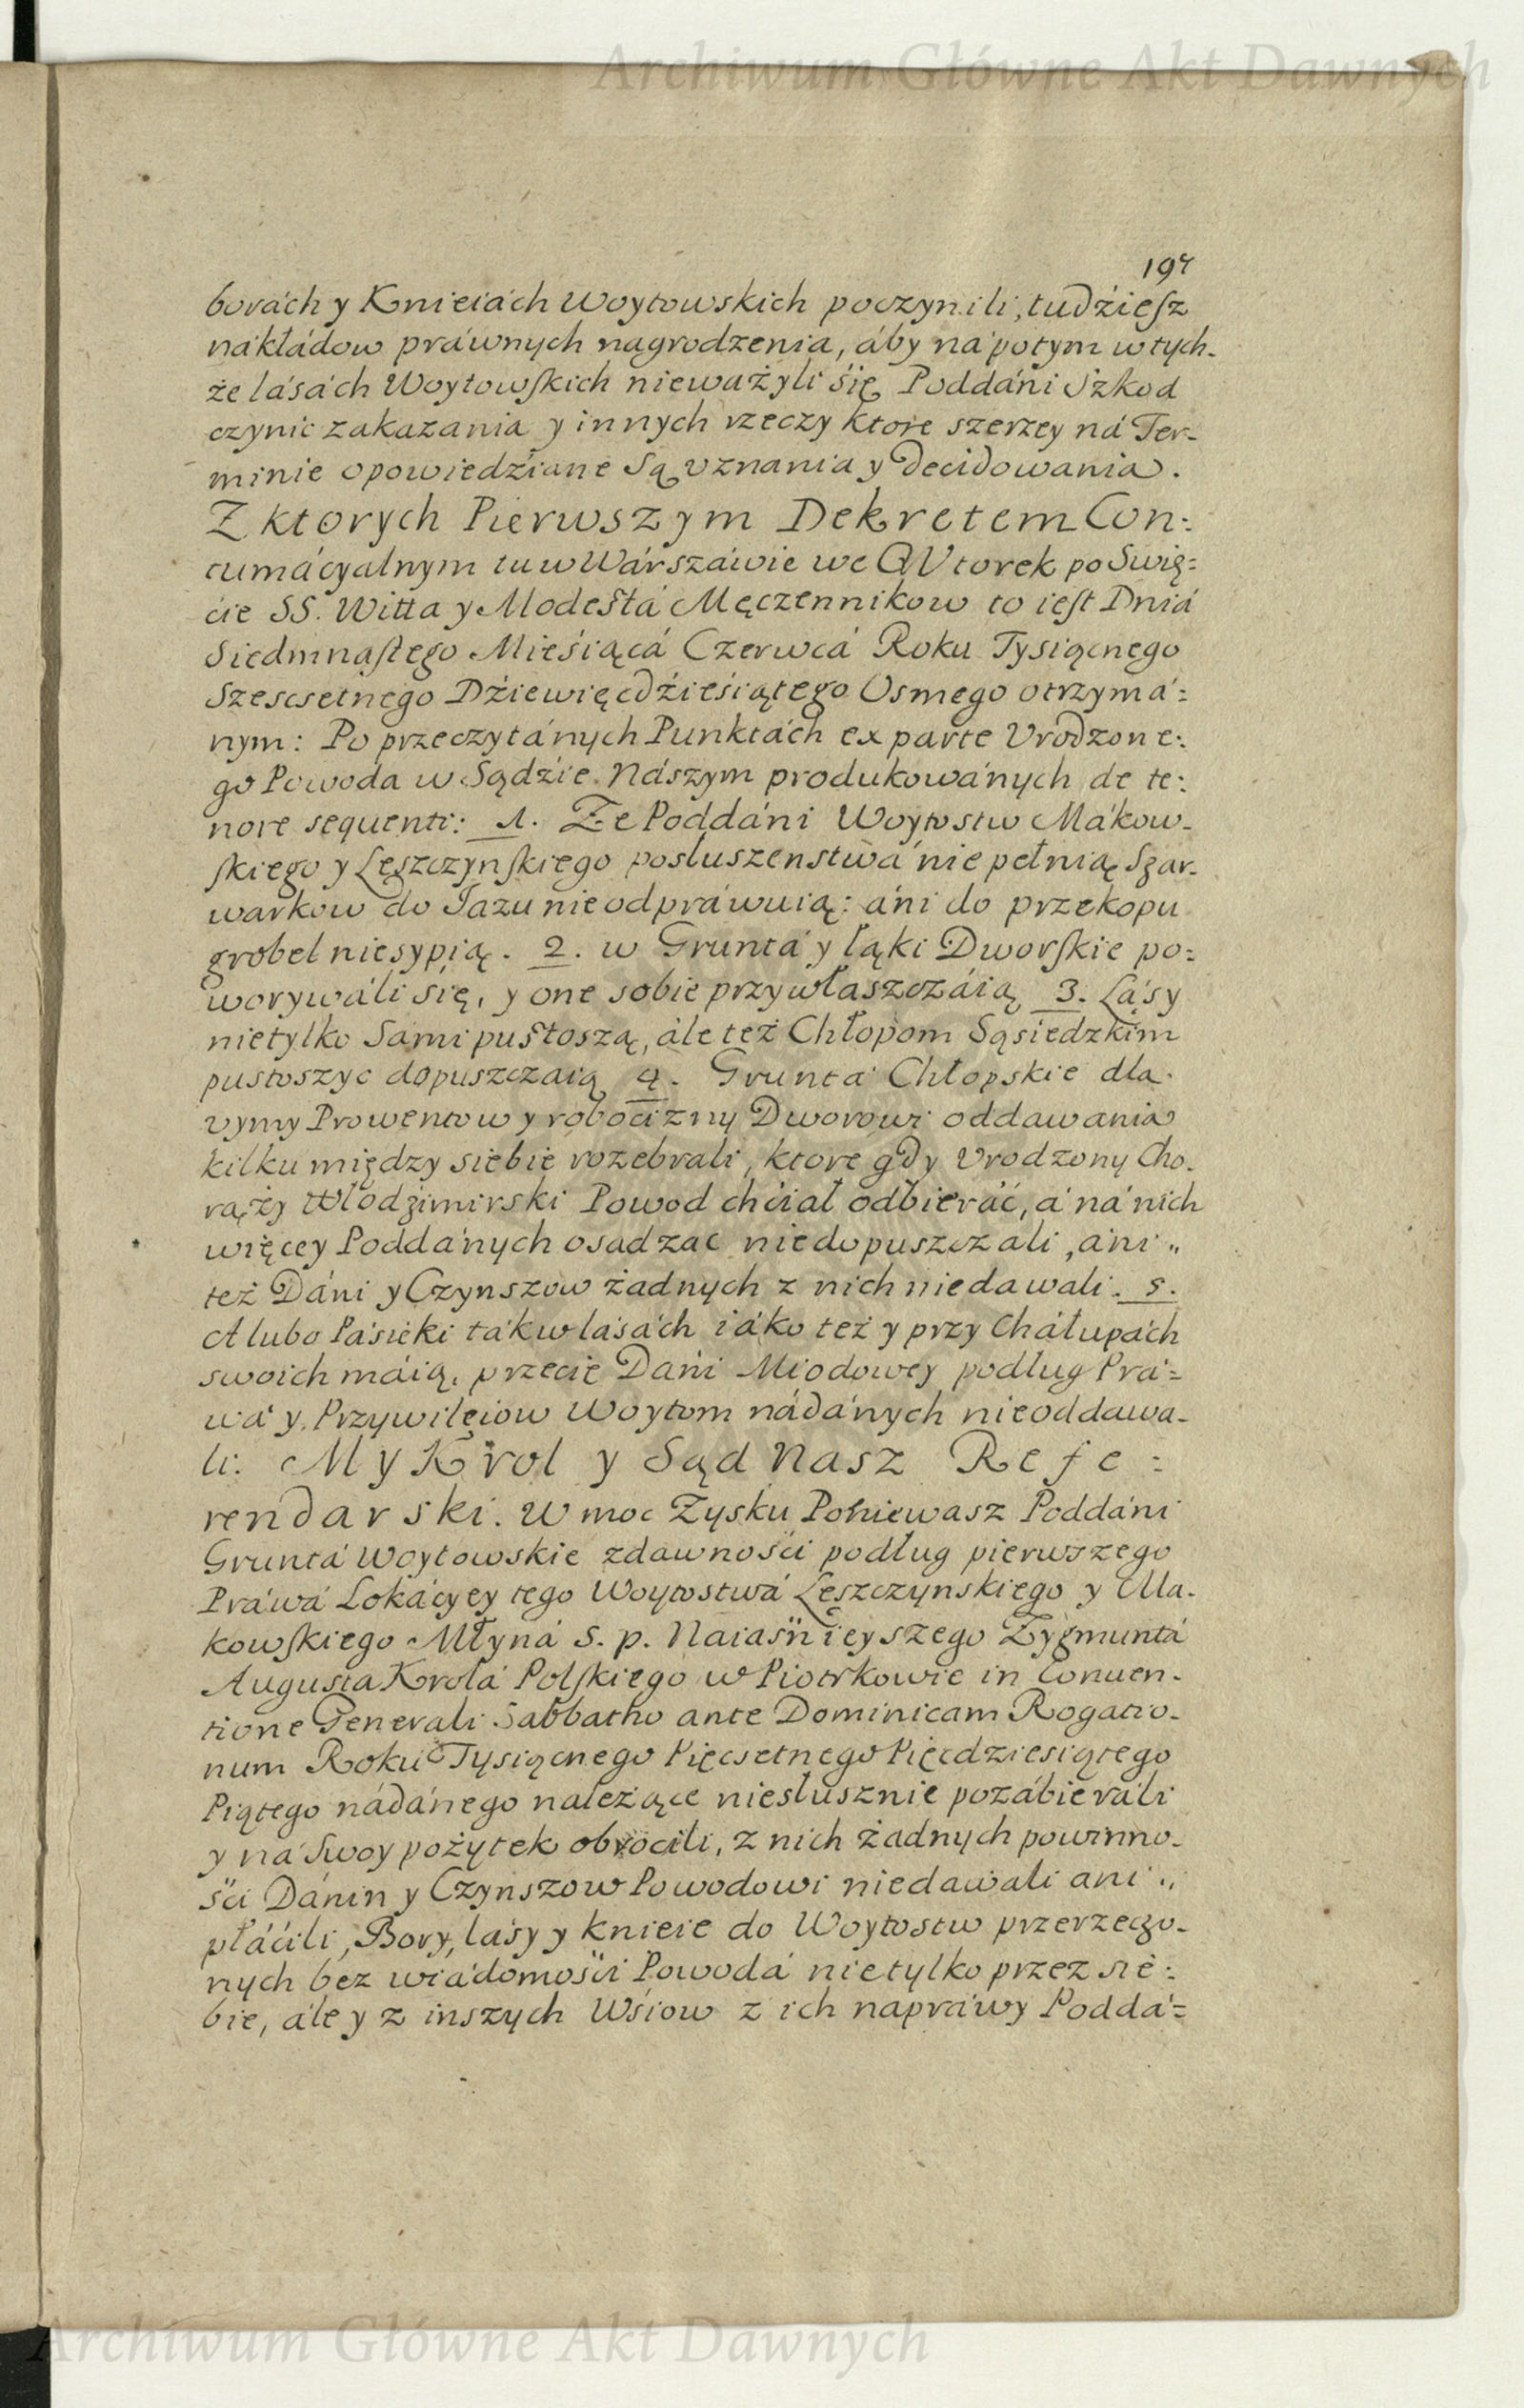 Archiwum Główne Akt Dawnych
197
borách y Knieiách Woytowskich poczynili, tudźiesz
nákłádow práwnych nagrodzenia, áby ná potym w tych-
że lásách Woytowskich nieważyli śię Poddáni Szkod
czynic zakazania y innych rzeczy ktore szerzey ná Ter-
minie opowiedźiane Są vznania y decidowania.
Z ktorych Pierwszym Dekretem Con:
tumácyalnym tu w Wárszáwie we Wtorek po Swię:
cie SS. Witta y Modestá Męczennikow to iest Dniá
Siedmnastego Mieśiącá Czerwcá Roku Tysiącnego
Szescsetnego Dźiewięcdźieśiątego Osmego otrzymá:
nym: Po przeczytánych Punktách ex parte Vrodzone:
go Powoda w Sądźie Nászym produkowánych de te:
nore sequenti: 1. Że Poddáni Woytostw Mákow-
skiego y Leszczynskiego posłuszenstwá nie pełnią Szar-
warkow do Jazu nieodpráwuią: áni do przekopu
grobel niesypią. 2. w Gruntá y łąki Dworskie po:
worywáli się, y one sobie przywłaszczáią 3. Lásy
nietylko Sami pustoszą, ále też Chłopom Sąsiedzkim
pustoszyc dopuszczaią 4. Gruntá Chłopskie dla
vymy Prowentow y robocizny Dworowi oddawania
kilku między siebie rozebrali, ktore gdy Vrodzony Cho-
rąży Włodźimirski Powod chćiał odbieráć, á ná nich
więcey Poddánych osadzac niedopuszczali, áni
też Dáni y Czynszow żadnych z nich niedawali. 5.
A lubo Pásieki ták w lásách iáko też y przy Cháłupách
swoich máią, przecie Dáni Miodowey podług Prá:
wá y Przywileiow Woytom nádánych nieoddawa-
li: My Krol y Sąd Nasz Refe:
rendarski. W moc Zysku Poniewasz Poddáni
Gruntá Woytowskie zdawnośći podług pierwszego
Práwá Lokácyey tego Woytostwá Leszczynskiego y Ma-
kowskiego Młyná S. p. Naiaśnieyszego Zygmuntá
Augusta Krolá Polskiego w Piotrkowie in Conuen-
tione Generali Sabbatho ante Dominicam Rogatio-
num Roku Tysiącnego Pięcsetnego Pięcdziesiątego
Piątego nádánego należące niesłusznie pozábieráli
y ná Swoy pożytek obrocili, z nich żadnych powinno-
śći Dánin y Czynszow Powodowi niedawali ani
płáćili, Bory, lásy y knieie do Woytostw przerzeczo-
nych bez wiádomośći Powodá nietylko przez sie:
bie, ále y z inszych Wśiow z ich napráwy Poddá:
Archiwum Główne Akt Dawnych